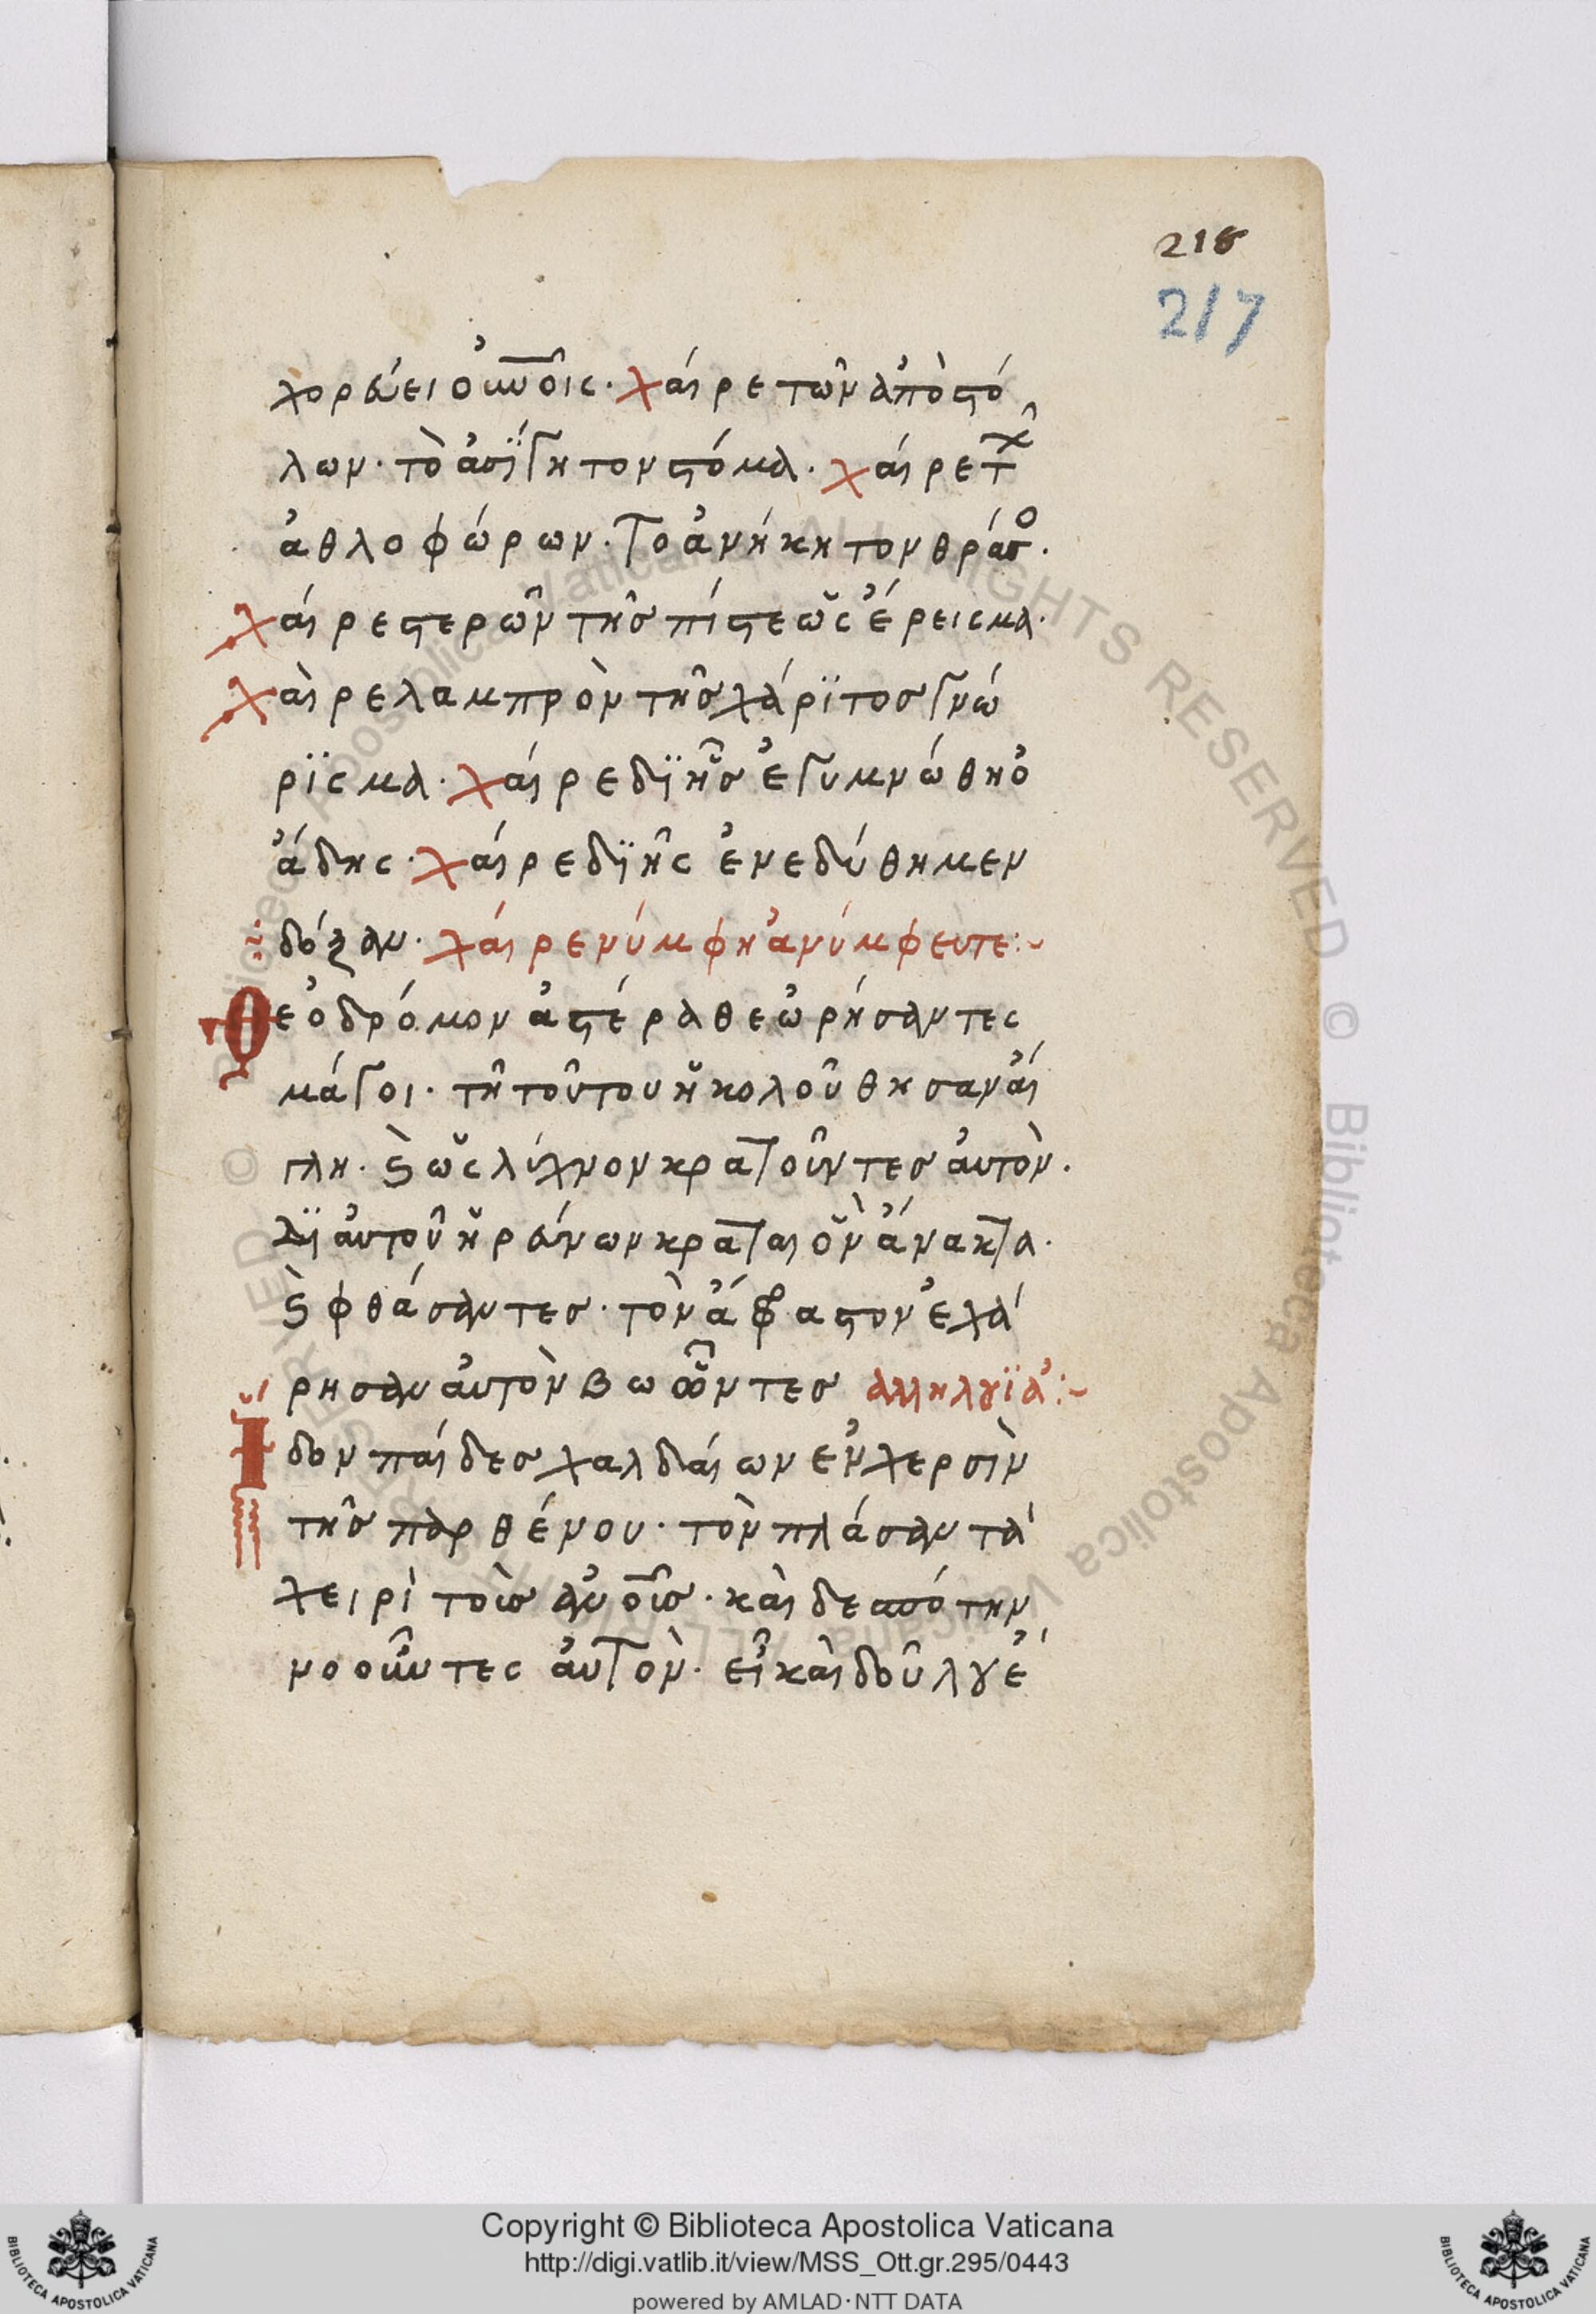 216
217
χορεύει οὐνοῖς· χαίρε τῶν ἀπὸστό
λων· τὸ ἀσΐγητον στόμα· χαίρε τῶν
ἀθλοφώρων· το ἀνήκητον θράσο·
χαίρε στερῶν τῆς πίστεως ἔρεισμα·
χαὶρε λαμπρὸν τῆς χάρϊτος γνώ
ρϊσμα· χαίρε δϊ ἧς ἐγυμνώθη ὁ
ἅδης· χαίρε δϊ ἧς ἐνεδύθημεν
δόξαν· χαίρε νύμφη ἀνύμφευτε:~
Θεὀδρόμον ἀστέρα θεὠρήσαντες
μάγοι· τῆ τοῦτου ἠκολοῦθησαν ἄι
γλη· ϗ ὡς λύχνον κρατοῦντες ἀυτὸν·
δϊ ἀυτοῦ ἠρεύνων κραταιὸν ἄνακτα·
ϗ φθάσαντες· τὸν ἄφθαστον ἐχά
ρησαν ἀυτὸν βωῶντες ἀλληλούϊα:~
Ἴδον παίδες χαλδαίων ἐν χερσὶν
τῆς παρθένου· τὸν πλάσαντα
χειρὶ τοὶς ἀνοῖς· καὶ δεσπότην
νοοῦντες ἀυτὸν· εῖ καὶ δοῦλου ἔ
Copyright © Biblioteca Apostolica Vaticana
http://digi.vatlib.it/view/MSS_Ott.gr.295/0443
powered by AMLAD·NTT DATA
BIBLIOTECA APOSTOLICA VATICANA
BIBLIOTECA APOSTOLICA VATICANA